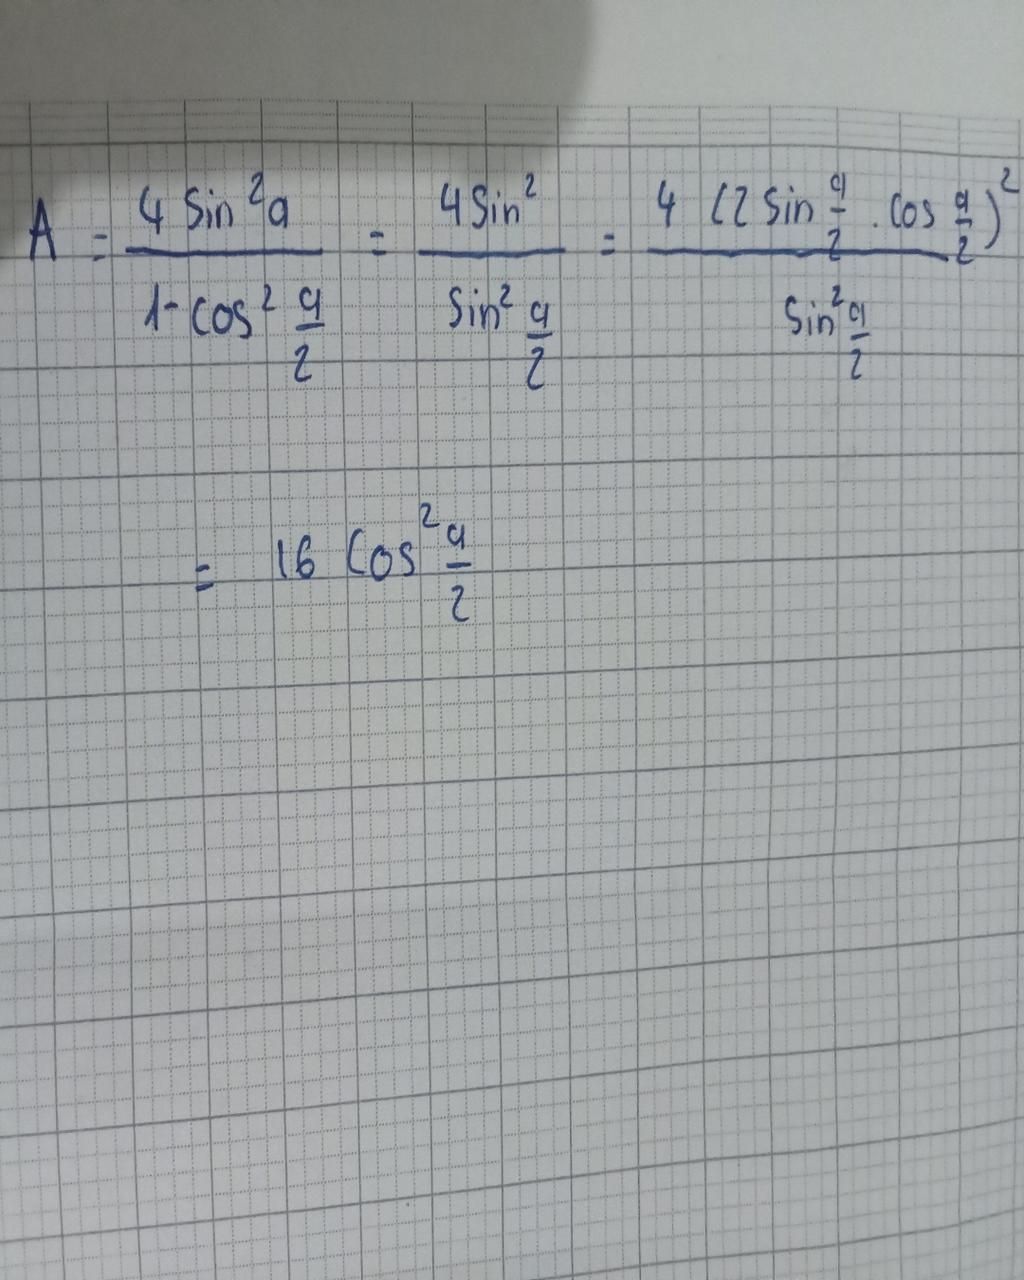 A = 4 Sin²a / 1-cos² a/2 = 4Sin² / Sin² a/2 = 4 (2 Sin a/2 . Cos a/2)² / Sin² a/2
= 16 Cos² a/2